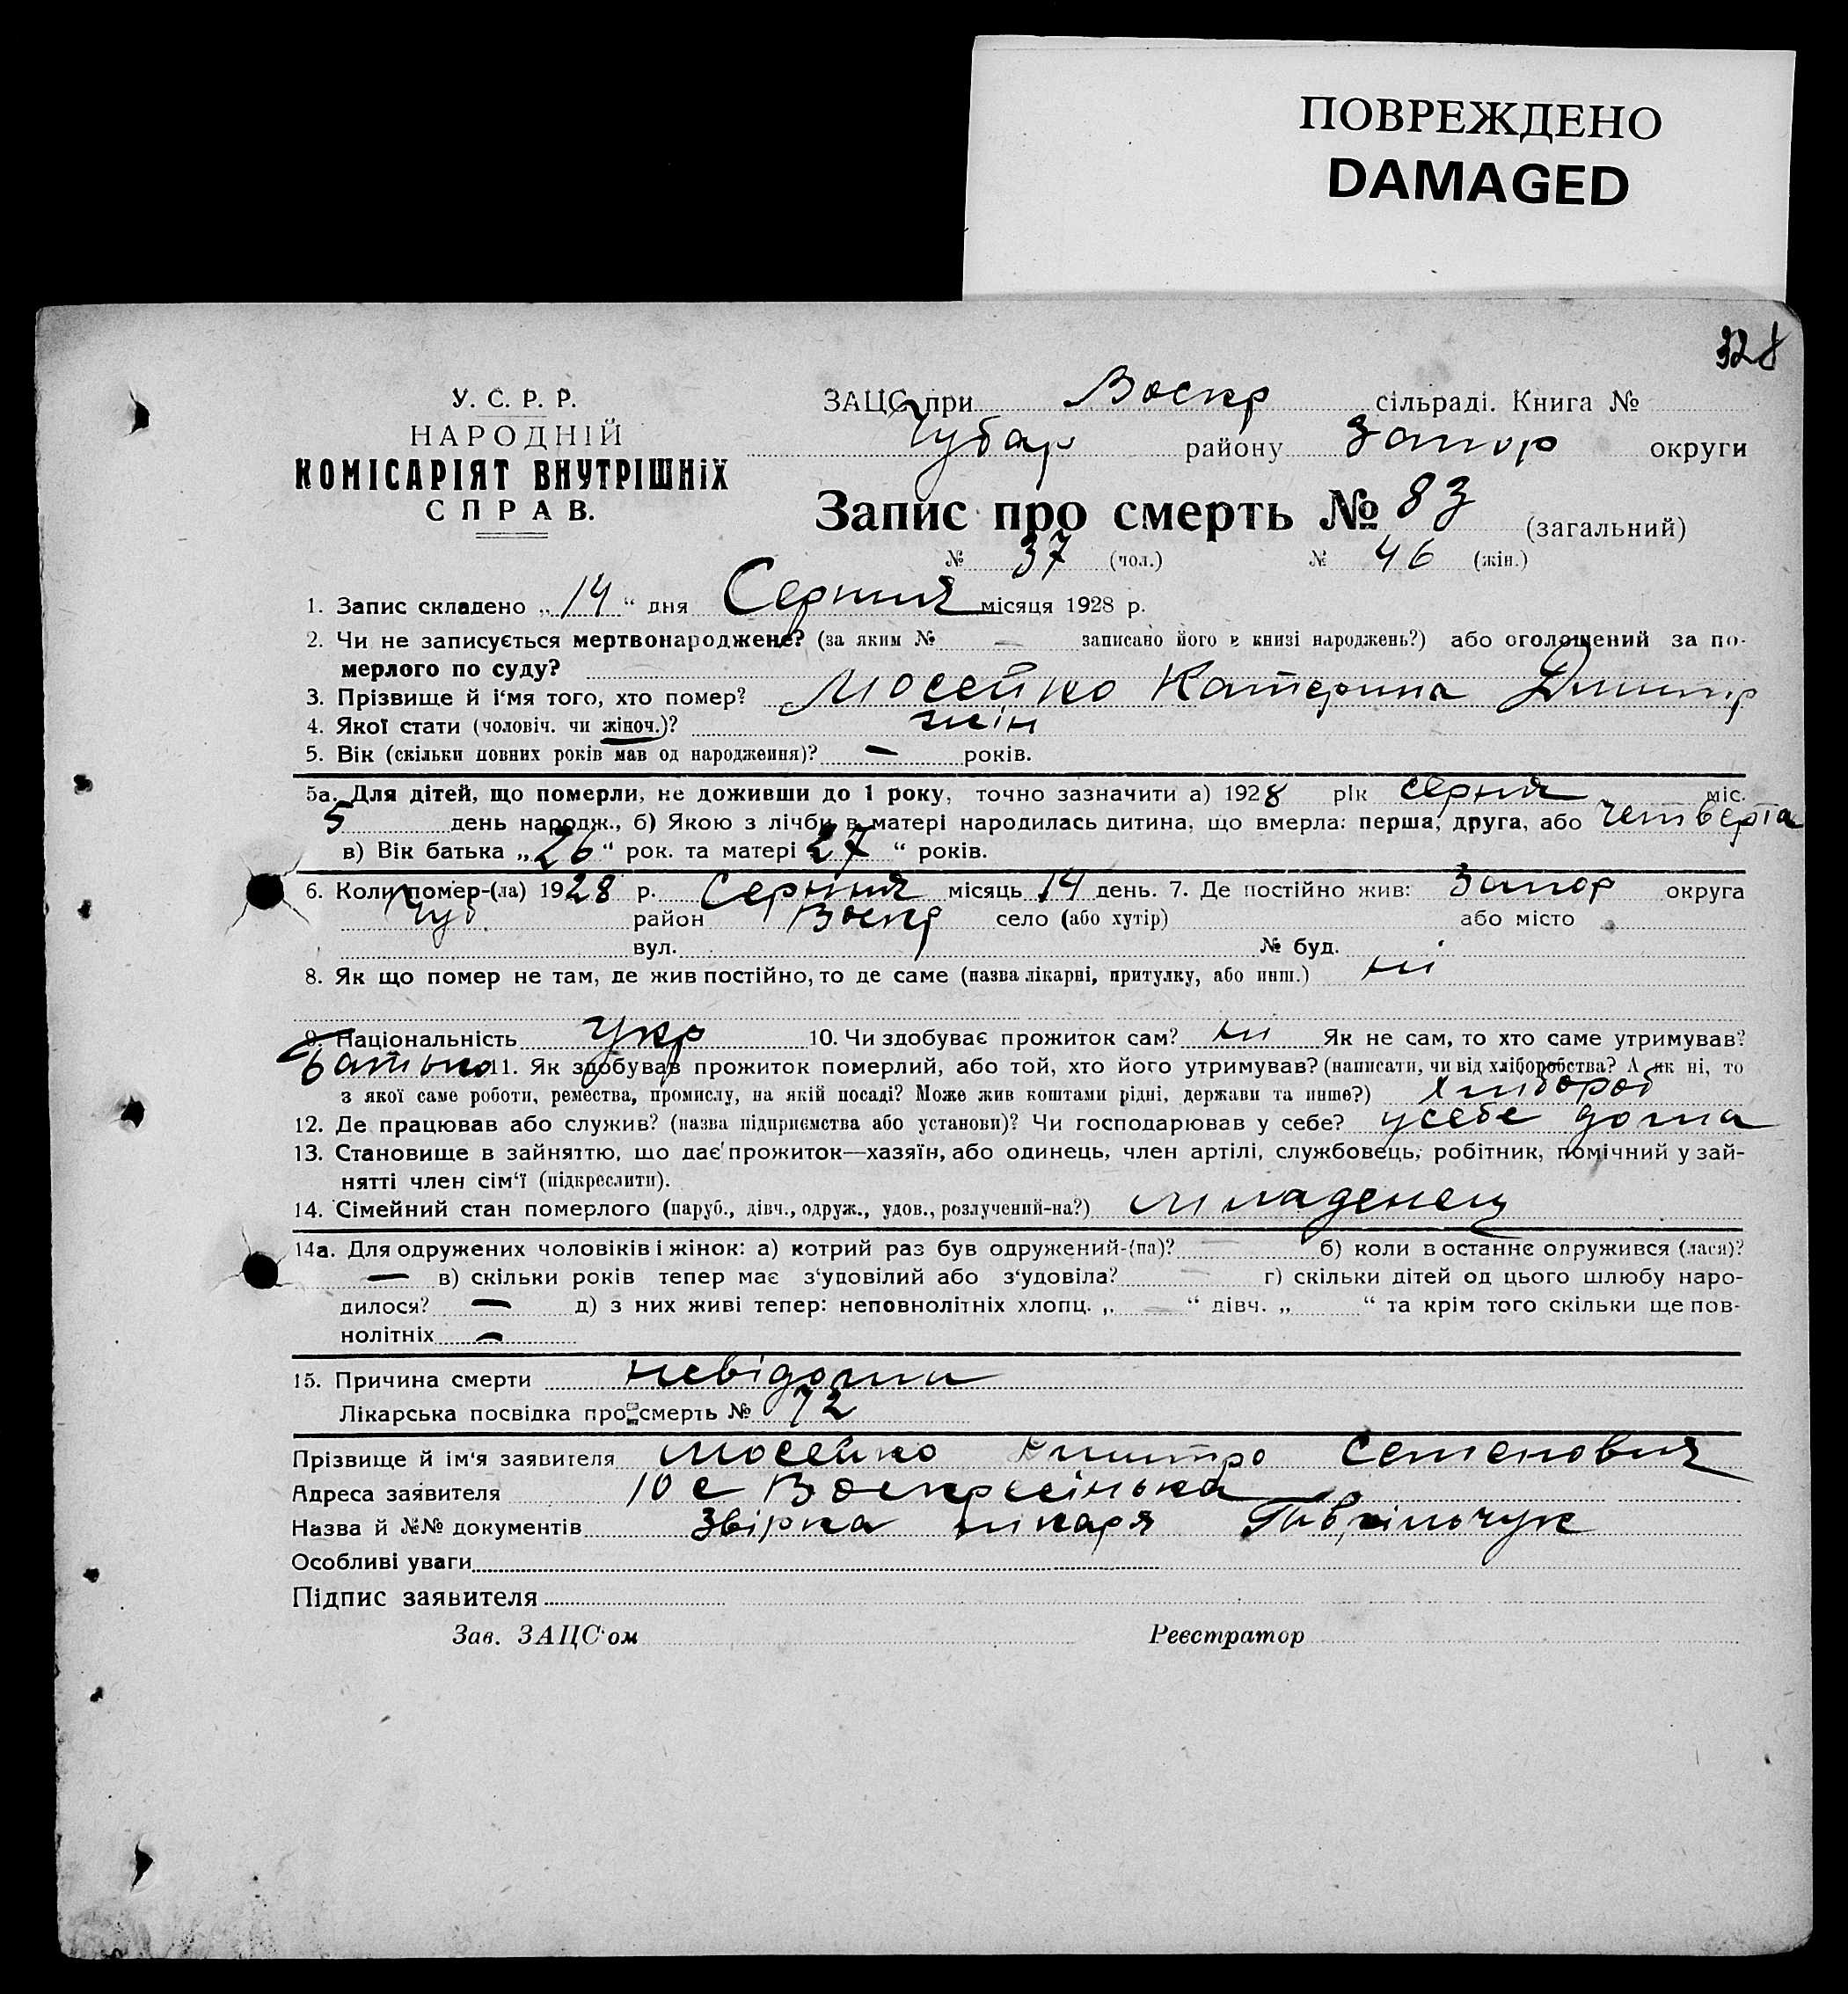 ПОВРЕЖДЕНО
DAMAGED
328
У. С. Р. Р.
НАРОДНІЙ
КОМІСАРІЯТ ВНУТРІШНІХ
СПРАВ.
ЗАЦС при Воскр сільраді. Книга №
Чубар району Запор округи
Запис про смерть № 83 (загальний)
№ 37 (чол.) № 46 (жін.)
1. Запис складено „14“ дня Серпня місяця 1928 р.
2. Чи не записується мертвонароджене? (за яким № — записано його в книзі народжень?) або оголощений за по-
мерлого по суду?
3. Прізвище й і'мя того, хто помер? Мосейко Катерина Дмитр
4. Якої стати (чоловіч. чи жіноч.)? жін
5. Вік (скільки повних років мав од народження)? — років.
5а. Для дітей, що померли, не доживши до 1 року, точно зазначити а) 1928 рік серпня міс.
5 день народж., б) Якою з лічби в матері народилась дитина, що вмерла: перша, друга, або четверта
в) Вік батька „26“ рок. та матері 27 “ років.
6. Коли помер-(ла) 1928 р. Серпня місяць 14 день. 7. Де постійно жив: Запор округа
Чуб район Воскр село (або хутір) або місто
вул. № буд.
8. Як що помер не там, де жив постійно, то де саме (назва лікарні, притулку, або инш.) ні
9. Національність Укр 10. Чи здобуває прожиток сам? ни Як не сам, то хто саме утримував?
батько 11. Як здобував прожиток померлий, або той, хто його утримував? (написати, чи від хліборобства? А як ні, то
з якої саме роботи, ремества, промислу, на якій посаді? Може жив коштами рідні, держави та инше?) хлибороб
12. Де працював або служив? (назва підприємства або установи)? Чи господарював у себе? у себе дома
13. Становище в зайняттю, що дає прожиток—хазяїн, або одинець, член артілі, службовець, робітник, помічний у зай-
нятті член сім'ї (підкреслити).
14. Сімейний стан померлого (паруб., дівч., одруж., удов., розлучений-на?) младенец
14а. Для одружених чоловіків і жінок: а) котрий раз був одружений-(на)? — б) коли в останнє одружився (лася)?
— в) скільки років тепер має з'удовілий або з'удовіла? — г) скільки дітей од цього шлюбу наро-
дилося? — д) з них живі тепер: неповнолітніх хлопц. „ — “ дівч. „ “ та крім того скільки ще пов-
нолітніх —
15. Причина смерти невідома
Лікарська посвідка про смерть № 72
Прізвище й ім'я заявителя Мосейко Дмитро Семенович
Адреса заявителя 10 с Воскресінька
Назва й №№ документів Звірка ликаря
Особливі уваги
Підпис заявителя
Зав. ЗАЦС'ом Реєстратор